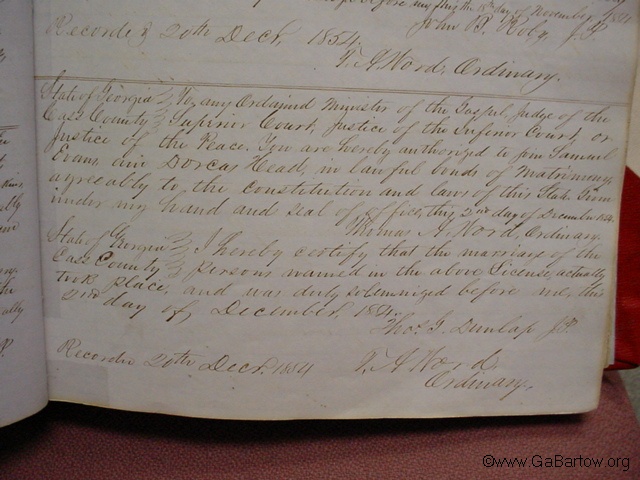 before me, this 18th day of November, 1854
John B. Roby, J.P.
Recorded 20th Decr, 1854,
T. A. Word, Ordinary.
State of Georgia To, any Ordained Minister of the Gospel, Judge of the
Cass County Superior Court, Justice of the Inferior Court, or
Justice of the Peace. You are hereby authorized to join Samuel
Evans and Dorcas Head, in lawful bonds of Matrimony,
agreeably to the constitution and laws of this State. Given
under my hand and seal of office, this 2nd day of December 1854.
Thomas A. Word, Ordinary.
State of Georgia I hereby certify that the marriage of the
Cass County persons named in the above License, actually
took place, and was duly solemnized before me, this
2nd day of December, 1854.
Thos. G. Dunlap J.P.
Recorded 20th Decr. 1854 T. A. Word,
Ordinary.
©www.GaBartow.org